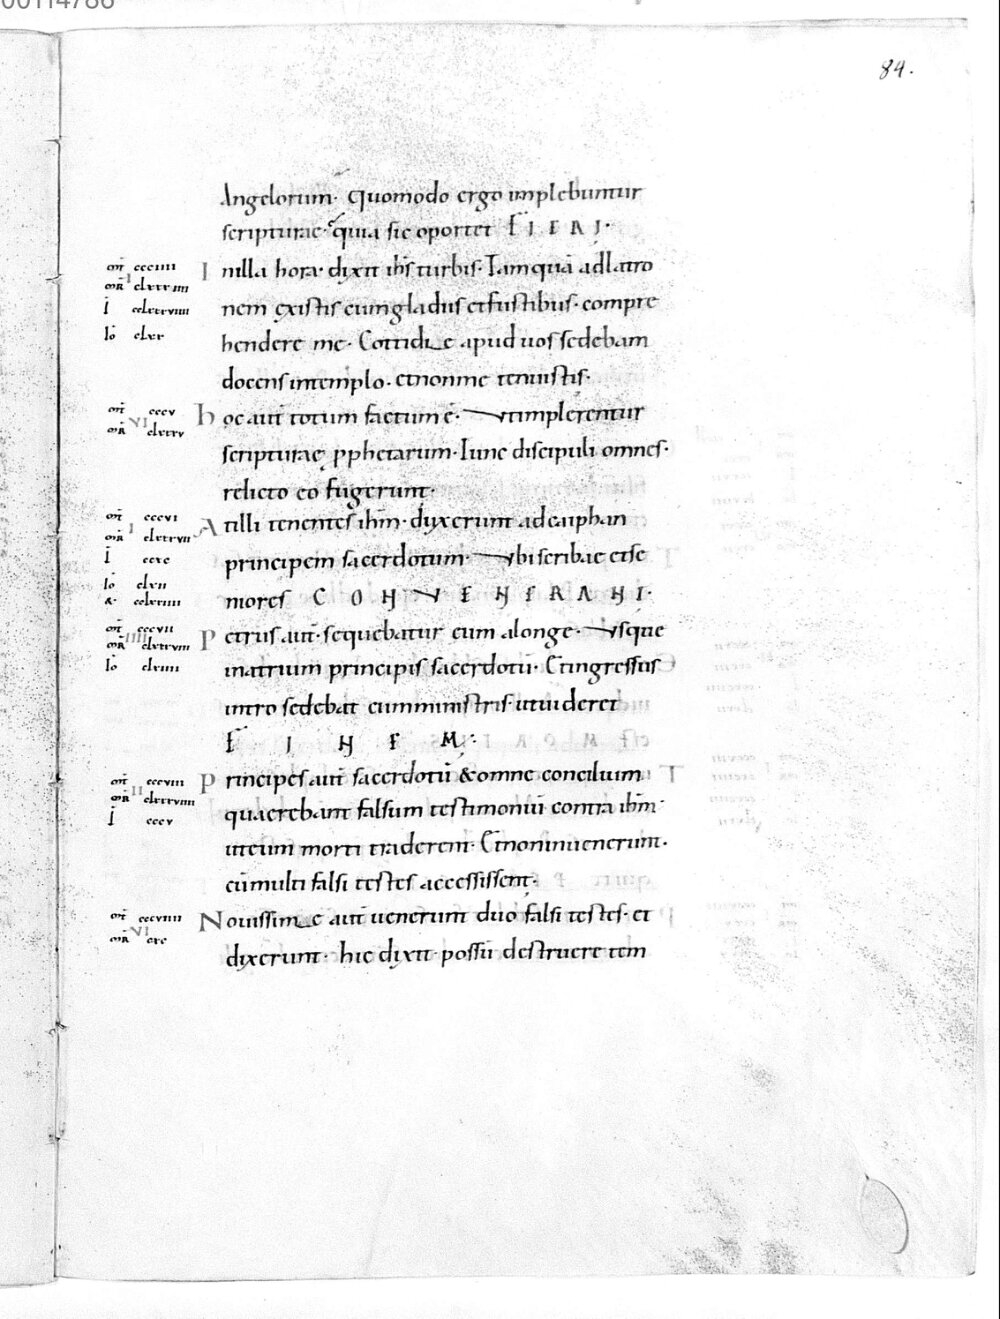 00114786
84.
Angelorum· Quomodo ergo implebuntur
scripturae· quia sic oportet FIERI·
mt ccciiii
mr clxxxiiii
I
Io clxx
Inilla hora· dixit ihs turbis· Tamquā adlatro
nem existis cumgladiis etfustibus· compre
hendere me· Cottidie apud uos sedebam
docens intemplo· etnonme tenuistis·
mt cccv
VI
mr clxxxv
hoc aut totum factum ē· utimplerentur
scripturae pphetarum· Tunc discipuli omnes·
relicto eo fugerunt·
mt cccvi
I
mr clxxxvii
I cccv
Io clxii
Atilli tenentes ihm· dixerunt adcaiphan
principem sacerdotum· ubi scribae etse
niores CONVENERANT·
mt cccvii
IIII
mr clxxxviii
Io clxiiii
Petrus aut· sequebatur eum alonge· usque
inatrium principis sacerdotū· Etingressus
intro sedebat cumministris utuideret
FINEM·
mt cccviii
II
mr clxxxviiii
I cccv
Principes aut sacerdotū & omne concilium
quaerebant falsum testimoniū contra ihm·
uteum morti traderent· Etnoninuenerunt·
cū multi falsi testes accessissent·
mt cccviiii
VI
mr cxc
Nouissime aut uenerunt duo falsi testes· et
dixerunt· hic dixit· possū destruere tem